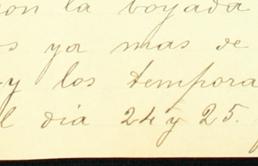 on la boyada
s ya mas de
y los tempora
l dia 24 y 25.